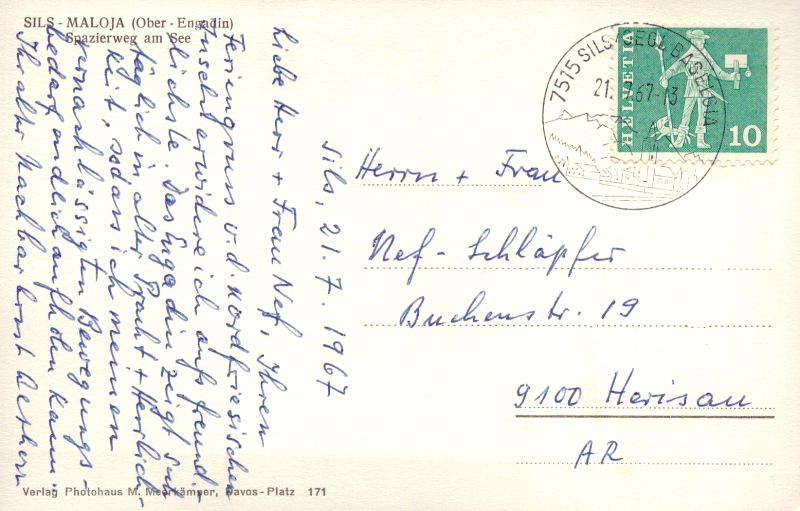 SILS - MALOJA (Ober - Engadin)
Spazierweg am See
Sils, 21. 7. 1967
Liebe Herr + Frau Nef, Ihren
Feriengruss v. d. nordfriesischen
Insel erwidere ich aufs freund-
lichste. Das Engadin zeigt sich
täglich in alter Pracht + Herrlich-
keit, sodass ich meinen
vernachlässigten Bewegungs-
bedarf endlich aufholen kann.
Ihr alter Nachbar Ernst
Verlag Photohaus M. Meerkämper, Davos - Platz 171
7515 SILS/SEGL BASELGIA
21. 7. 67 - 13
HELVETIA
10
Herrn + Frau
Nef - Schläpfer
Buchenstr. 19
9100 Herisau
AR